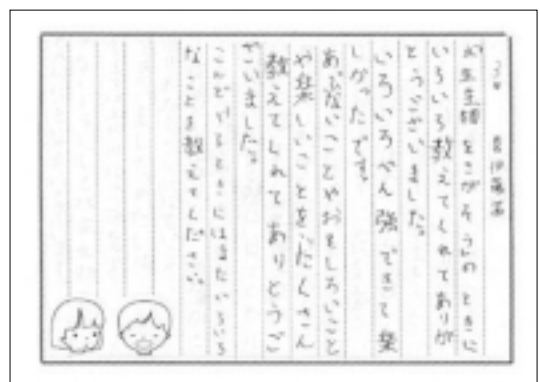 をさがそう」のときに
いろいろ教えてくれてありが
とうございました。
いろいろべん強できて楽
しかったです。
あぶないことやおもしろいこと
や楽しいことをたくさん
教えてくれてありとうご
ざいました。
こんど るときにはまたいろいろ
なことを教えてください。